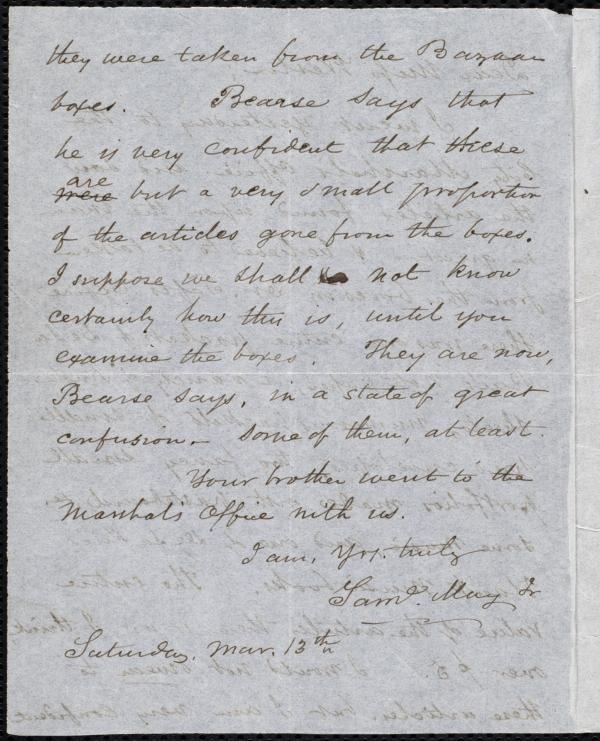 they were taken from the Bazaar
boxes. Bearse says that
he is very confident that these
are
were but a very small proportion
of the articles gone from the boxes.
I suppose we shall not know
certainly how this is, until you
examine the boxes. They are now,
Bearse says, in a state of great
confusion,- some of them, at least.
Your brother went to the
Marshal's Office with us.
I am, Yrs. truly
Saml. May Jr
Saturday, Mar. 13th